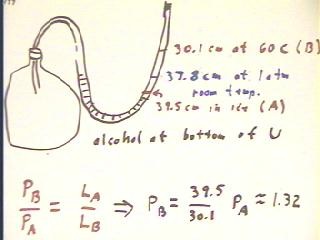 30.1 cm at 60 C (B)
37.8 cm at 1 atm
room temp.
39.5 cm in ice (A)
alcohol at bottom of U
P_B / P_A = L_A / L_B ⇒ P_B = 39.5 / 30.1 P_A ≈ 1.32